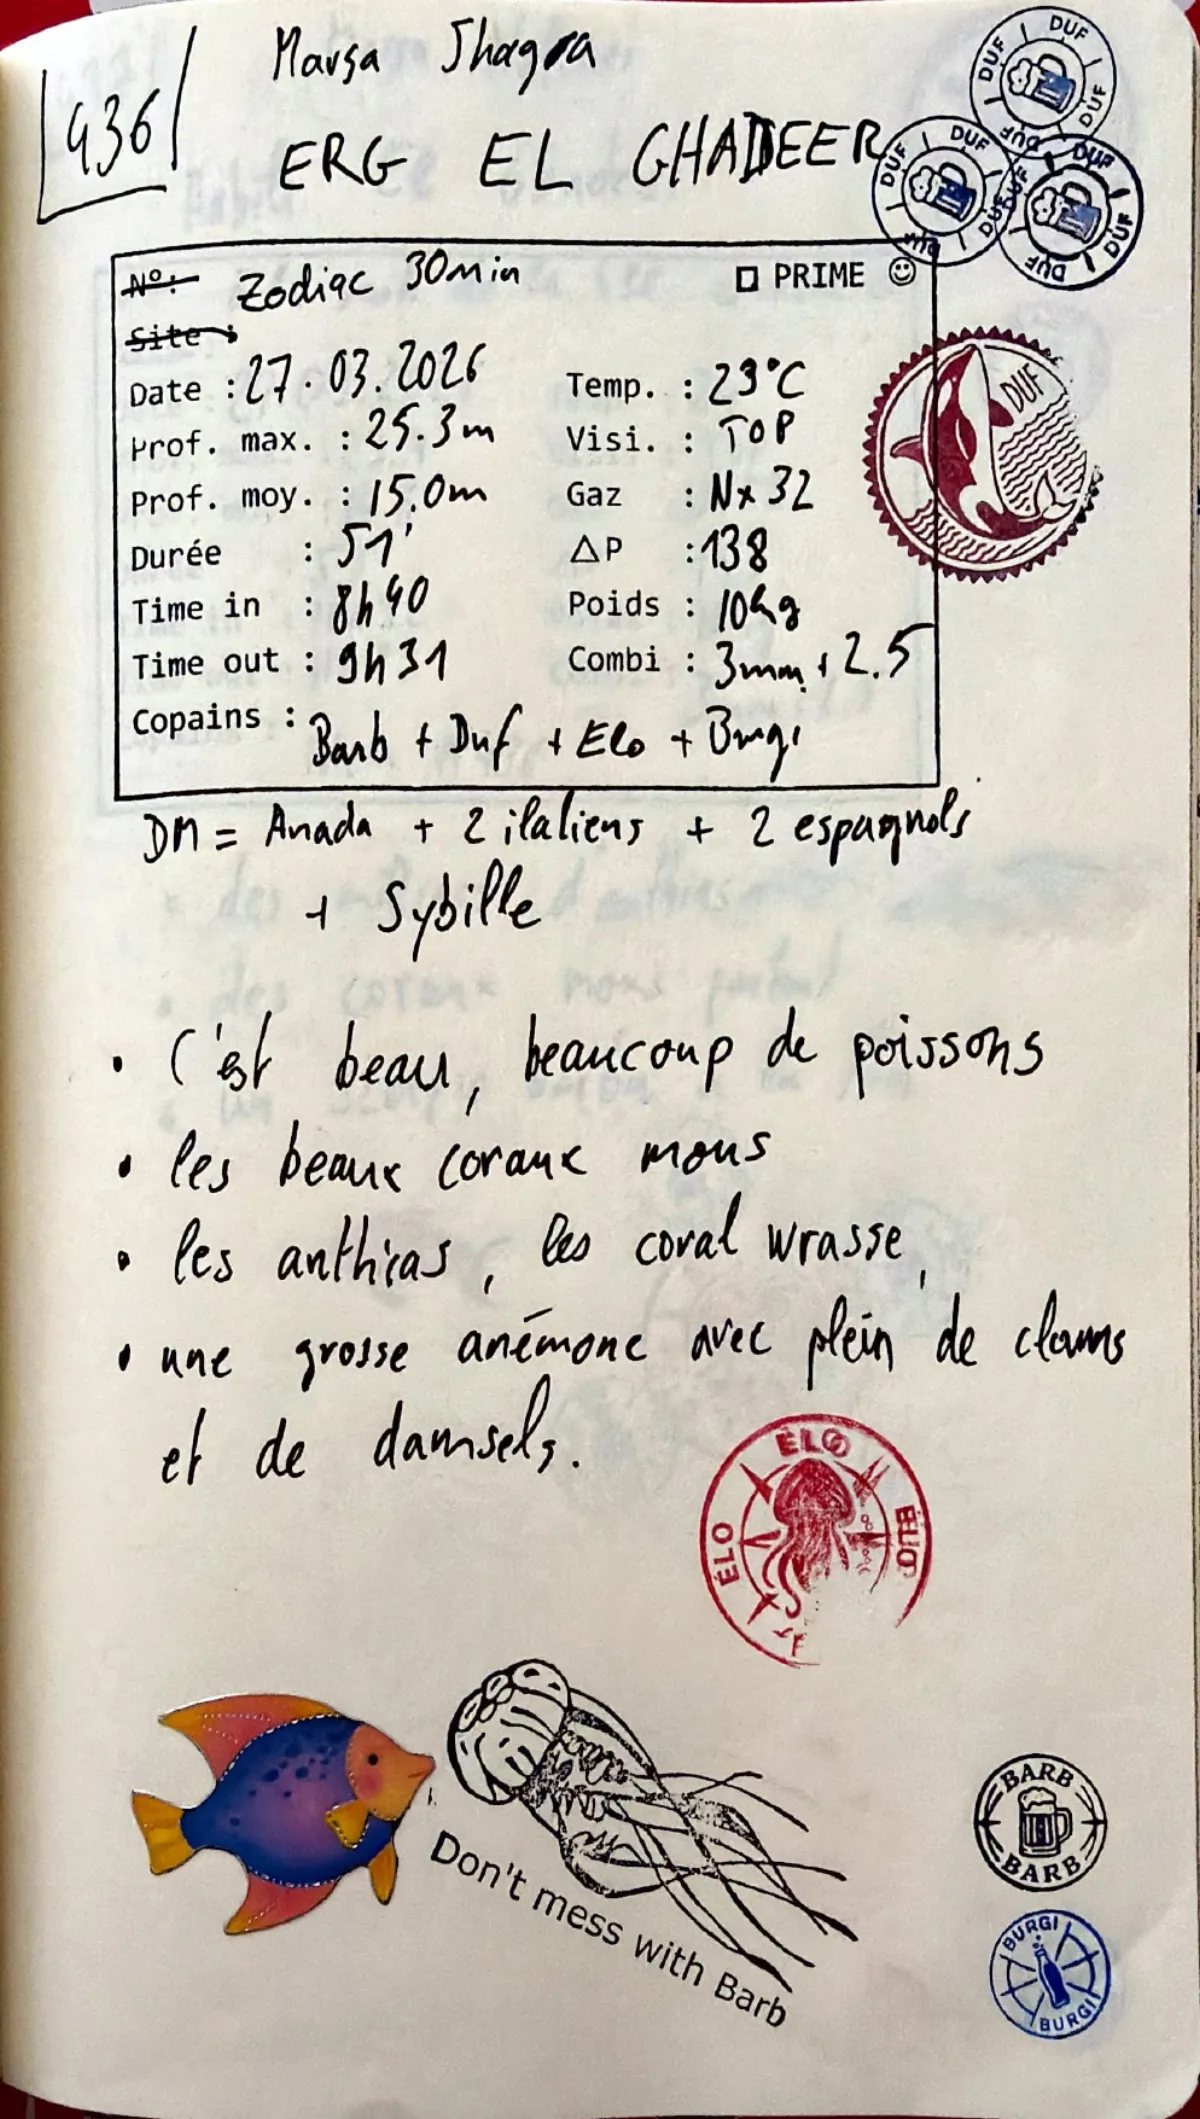 436
Marsa Shagra
ERG EL GHADEER
DUF DUF DUF DUF
DUF DUF DUF DUF
DUF DUF DUF DUF
N°: Zodiac 30min □ PRIME ☺
Site :
Date : 27.03.2026 Temp. : 23°C
Prof. max. : 25.3m Visi. : TOP
Prof. moy. : 15.0m Gaz : Nx 32
Durée : 51' ΔP : 138
Time in : 8h40 Poids : 10kg
Time out : 9h31 Combi : 3mm + 2.5
Copains : Barb + Duf + Elo + Burgi
DUF
DM = Anada + 2 italiens + 2 espagnols
+ Sybille
• C'est beau, beaucoup de poissons
• les beaux coraux mous
• les anthias, les coral wrasse,
• une grosse anémone avec plein de clams
et de damsels.
ÉLO
ÉLO
Don't mess with Barb
BARB
BARB
BURGI
BURGI